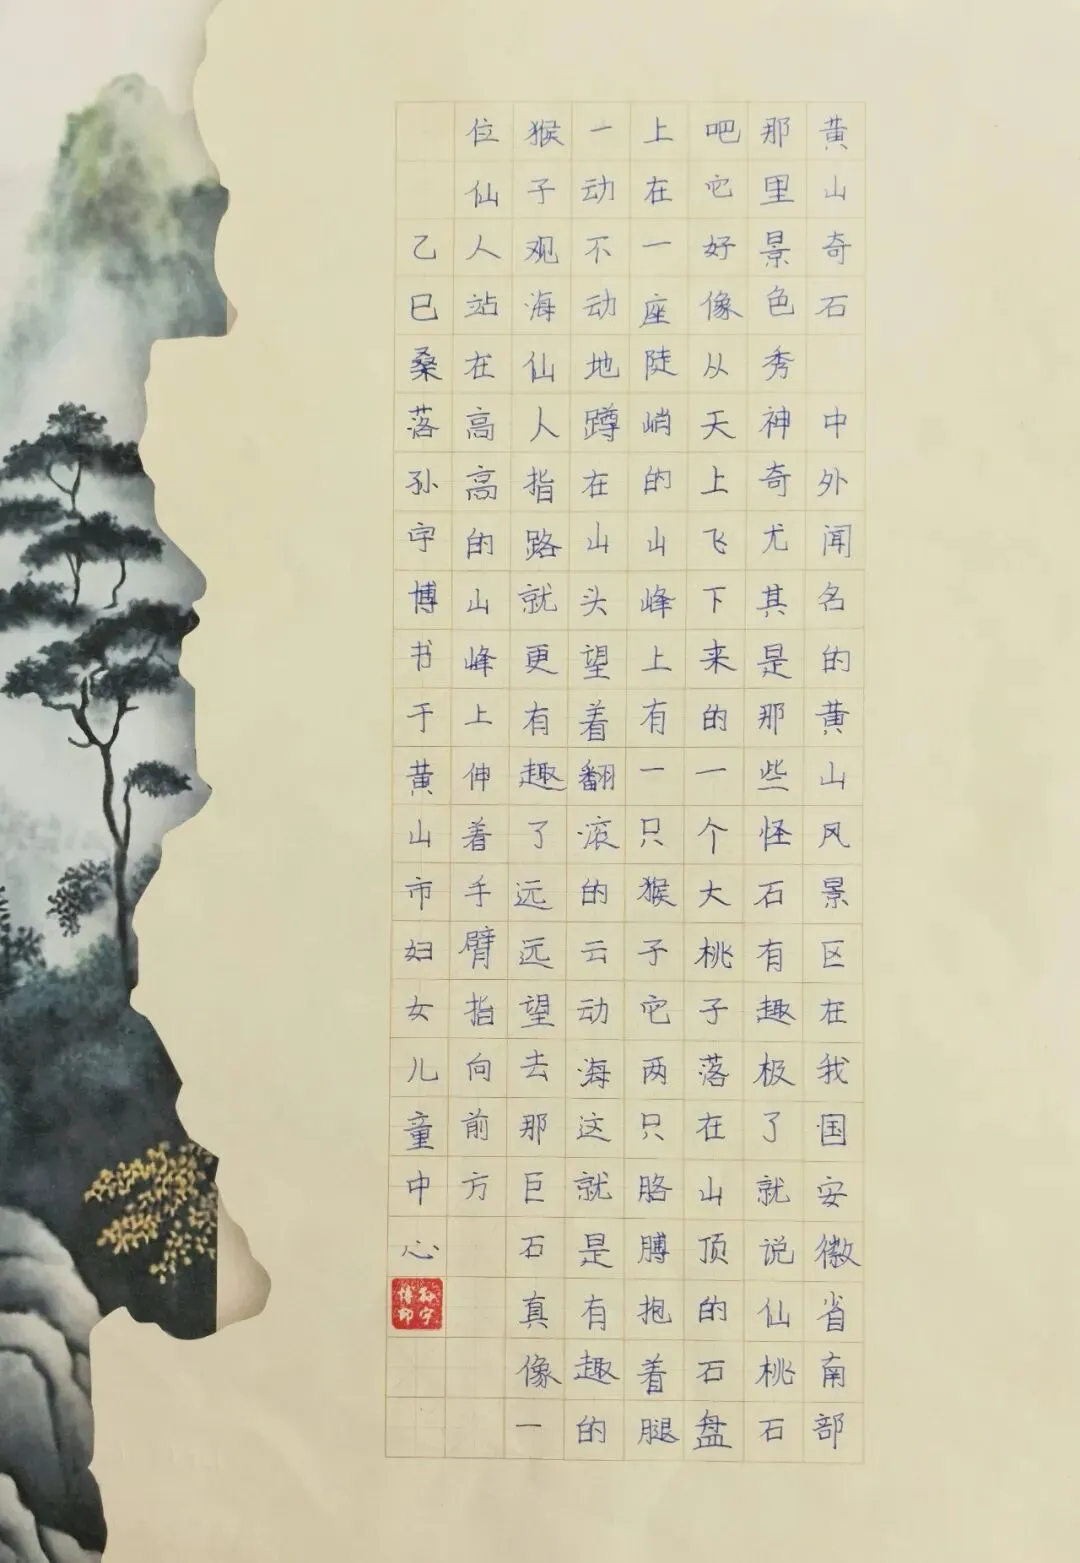 黄山奇石 中外闻名的黄山风景区在我国安徽省南部
那里景色秀神奇尤其是那些怪石有趣极了就说仙桃石
吧它好像从天上飞下来的一个大桃子落在山顶的石盘
上在一座陡峭的山峰上有一只猴子它两只胳膊抱着腿
一动不动地蹲在山头望着翻滚的云动海这就是有趣的
猴子观海仙人指路就更有趣了远远望去那巨石真像一
位仙人站在高高的山峰上伸着手臂指向前方
乙巳桑落孙宇博书于黄山市妇女儿童中心
孙宇博印